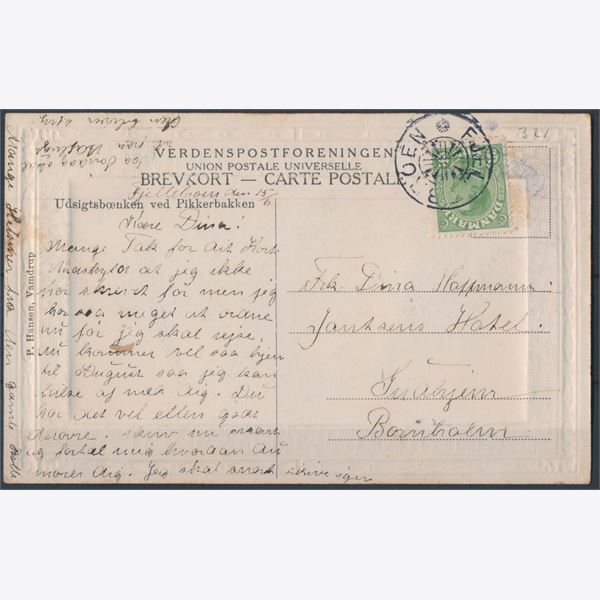 321
VERDENSPOSTFORENINGEN
UNION POSTALE UNIVERSELLE
BREVKORT — CARTE POSTALE
Udsigtsbœnken ved Pikkerbakken
P. Hansen, Vamdrup
DANMARK
Kære Dina!
Mange Tak for dit Kort
at jeg ikke
har skrevet før men jeg
har saa meget at ordne
nu før jeg skal rejse.
nu kommer vel saa hjem
til August saa jeg kan
hilse af med dig. Du
har det vel ellers godt
derovre. skriv nu snart
og fortæl mig hvordan du
morer dig. Jeg skal snart skrive igen
Mange Hilsner fra din gamle
Frk. Dina Hoffmann.
Jantzens Hotel.
Gudhjem
Bornholm